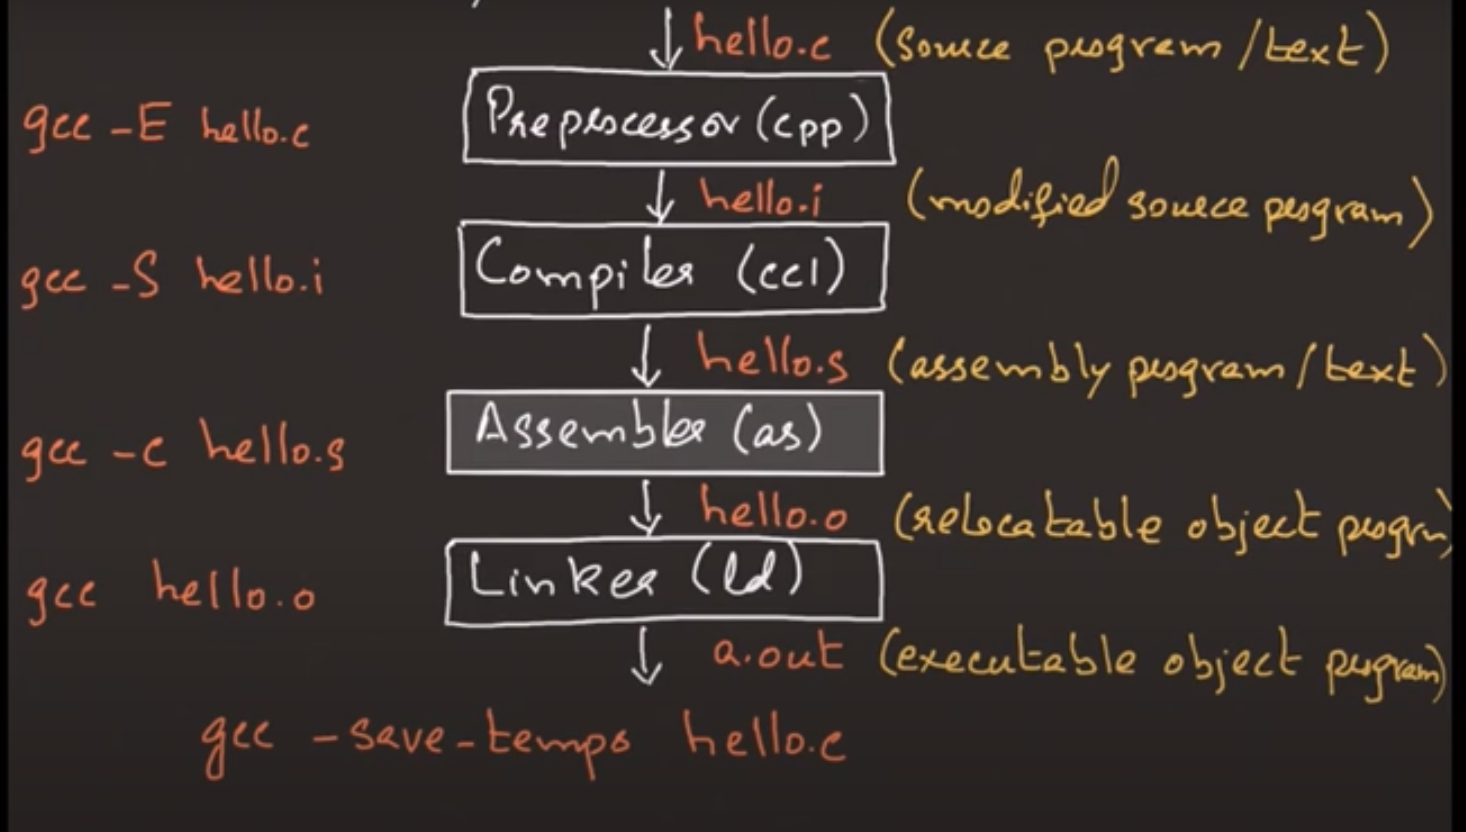 hello.c (source program/text)
gcc -E hello.c Preprocessor (cpp)
hello.i (modified source program)
gcc -S hello.i Compiler (cc1)
hello.s (assembly program/text)
gcc -c hello.s Assembler (as)
hello.o (relocatable object progrm)
gcc hello.o Linker (ld)
a.out (executable object program)
gcc -save-temps hello.c